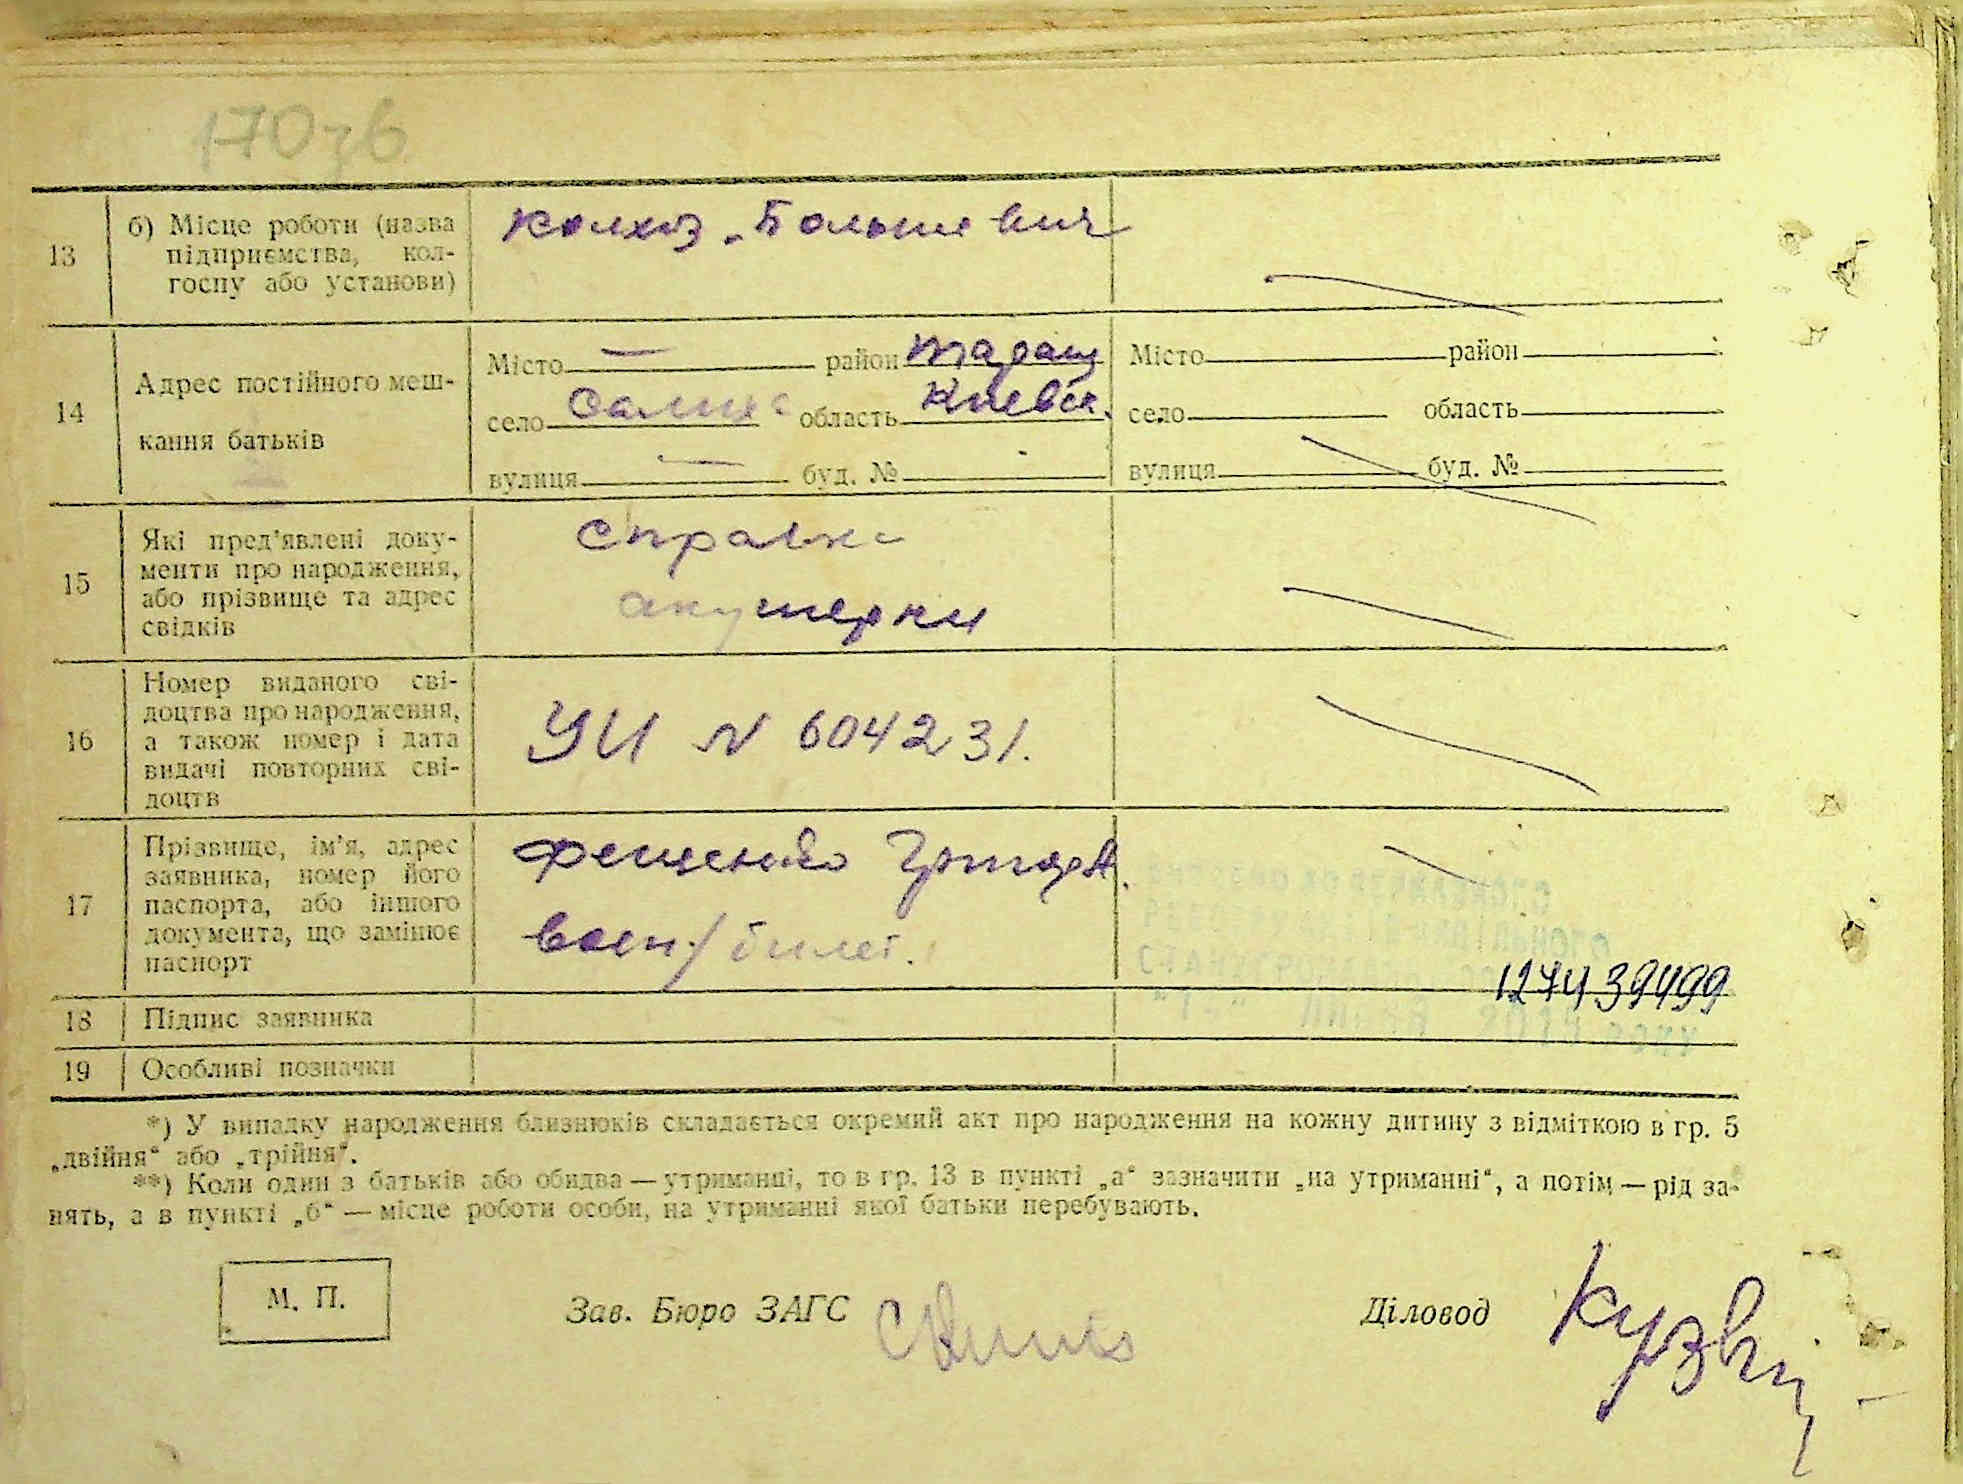 170зв
13
б) Місце роботи (назва
підприємства, кол-
госпу або установи)
колхоз „Большевик
14
Адрес постійного меш-
кання батьків
Місто — район Таращ
село область Киевск.
вулиця — буд. №
Місто район
село область
вулиця буд. №
15
Які пред'явлені доку-
менти про народження,
або прізвище та адрес
свідків
Справка
акушерки
16
Номер виданого сві-
доцтва про народження,
а також номер і дата
видачі повторних сві-
доцтв
УИ N 604231.
17
Прізвище, ім'я, адрес
заявника, номер його
паспорта, або іншого
документа, що замінює
паспорт
Фещенко
воен/билет.
127439499
18
Підпис заявника
19
Особливі позначки
*) У випадку народження близнюків складається окремий акт про народження на кожну дитину з відміткою в гр. 5
„двійня“ або „трійня“.
**) Коли один з батьків або обидва — утриманці, то в гр. 13 в пункті „а“ зазначити „на утриманні“, а потім — рід за-
нять, а в пункті „б“ — місце роботи особи, на утриманні якої батьки перебувають.
М. П.
Зав. Бюро ЗАГС
Діловод